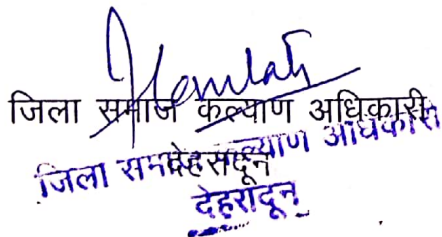 जिला समाज कल्याण अधिकारी
देहरादून
जिला समाज कल्याण अधिकारी
देहरादून